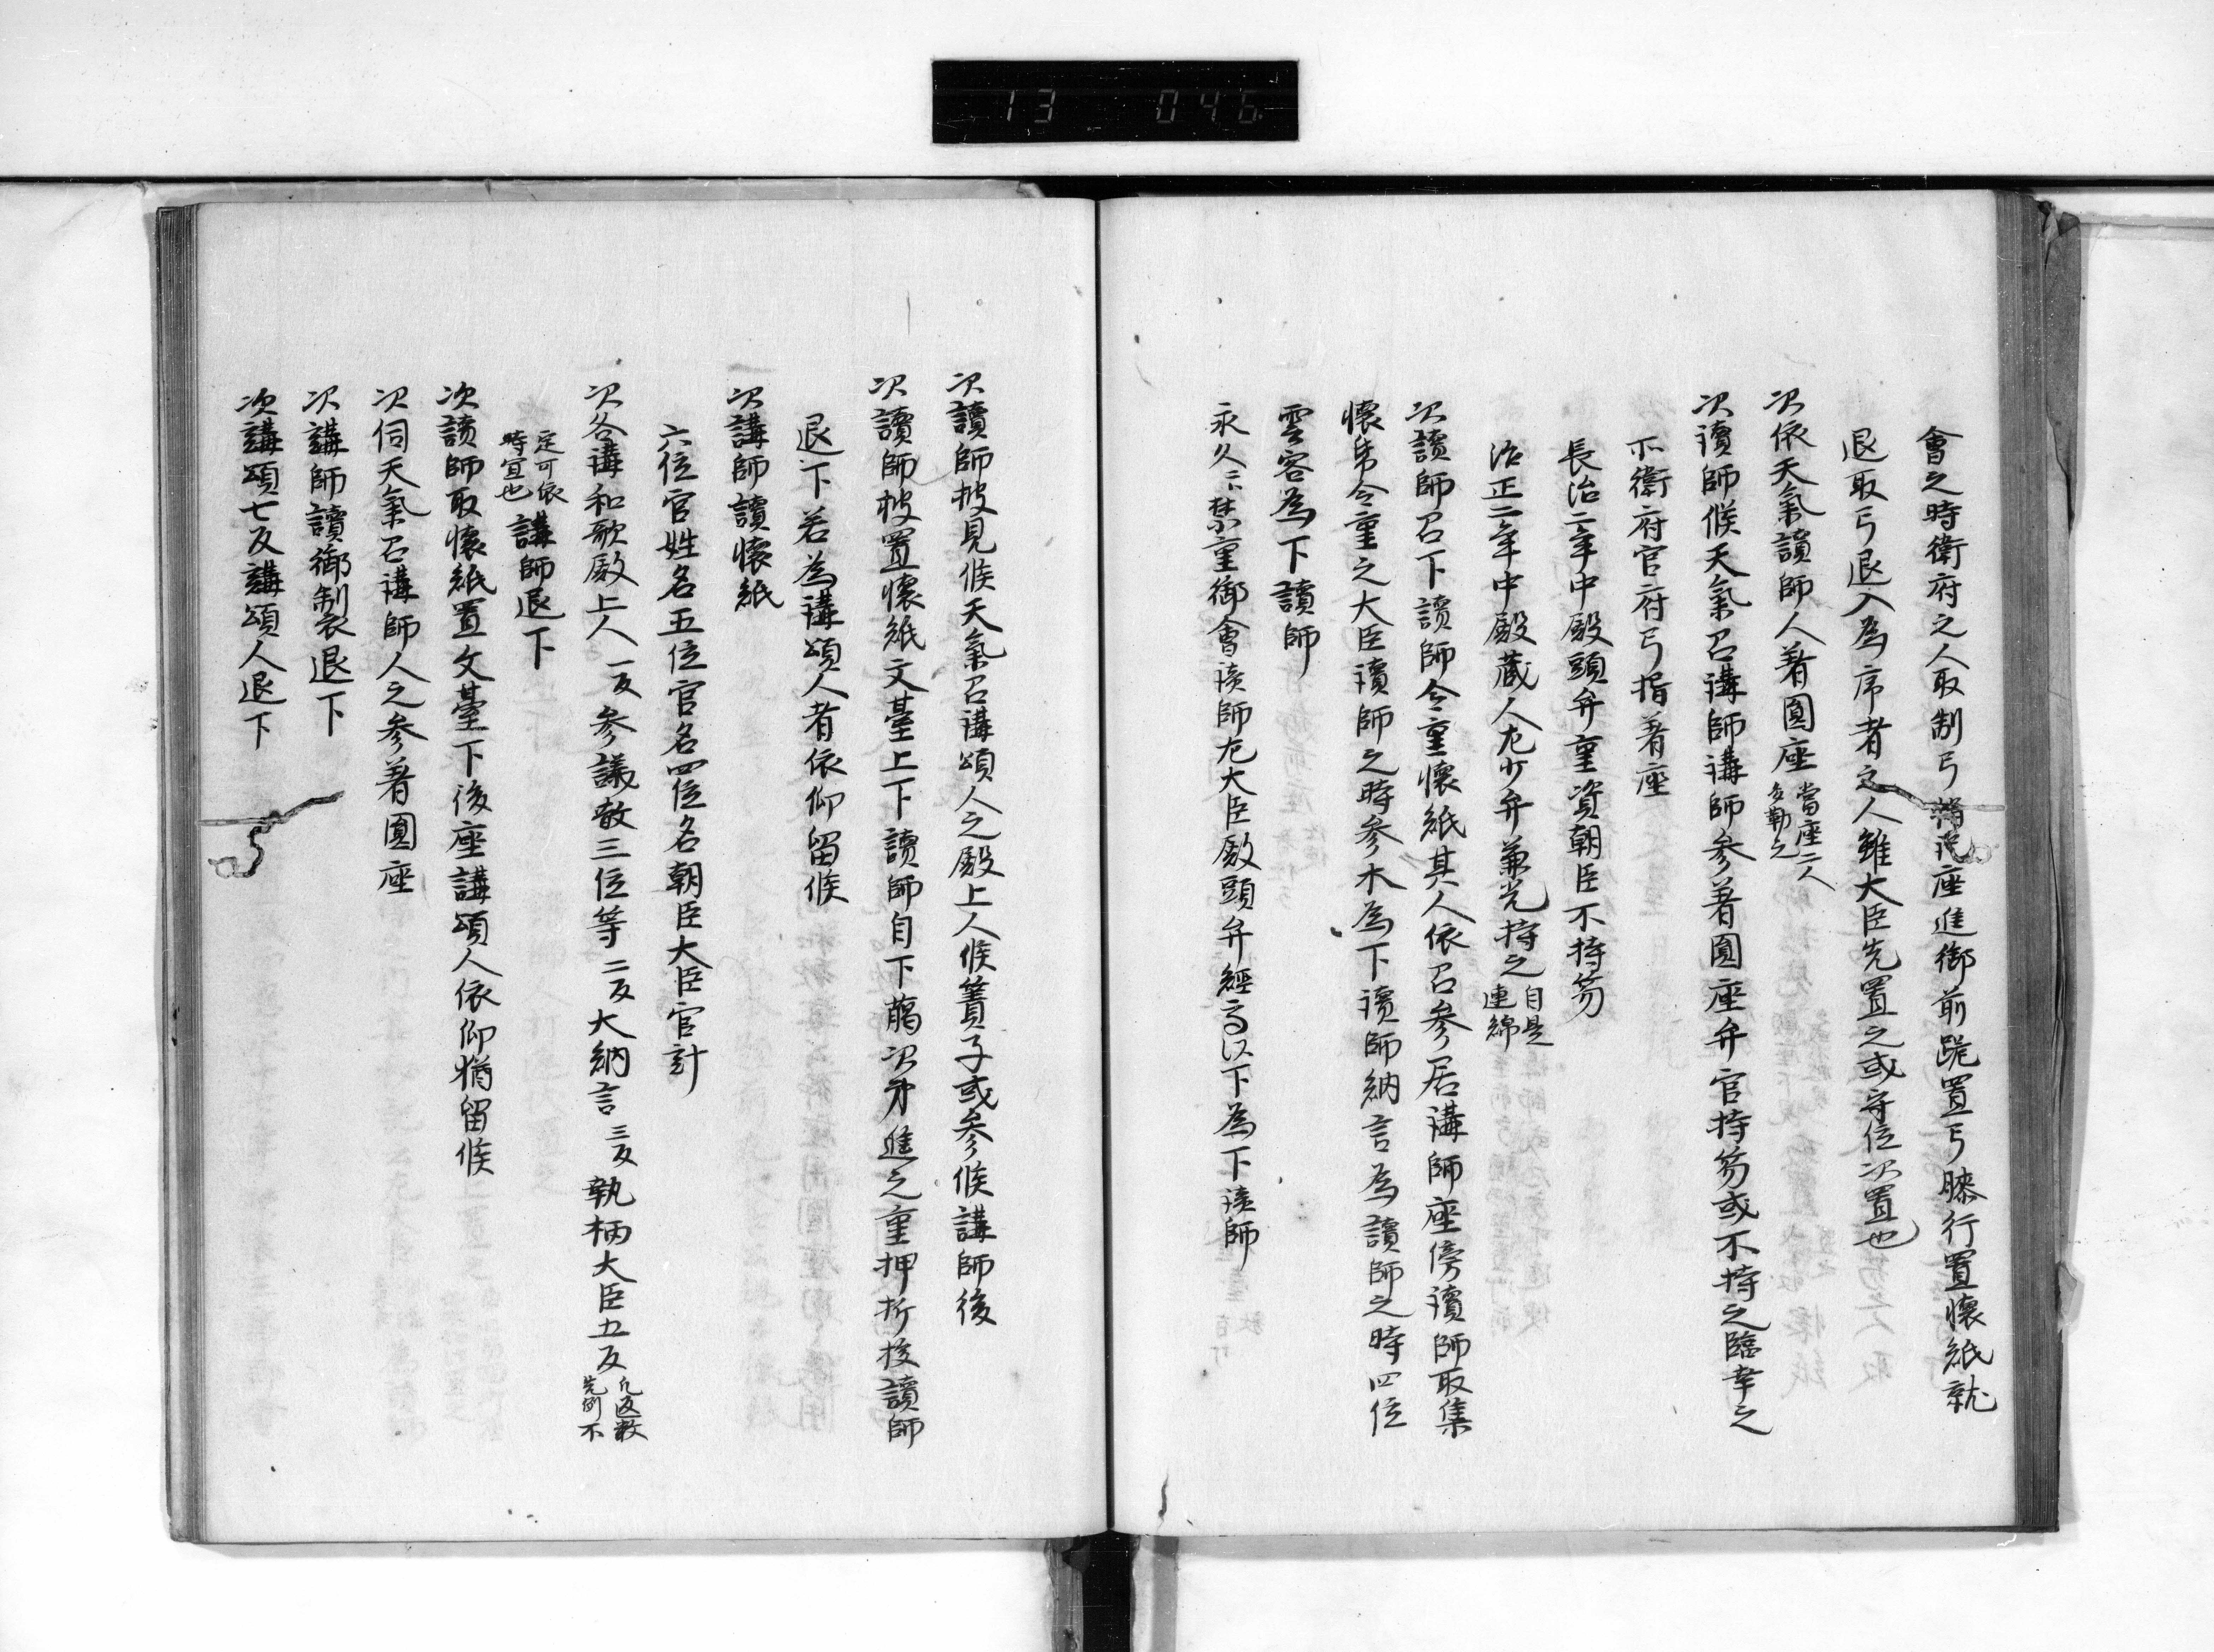 13 046
會之時衛府之人取副弓 座進御前跪置弓膝行置懷紙就
退取弓退入為序者之人雖大臣先置之或守位次置也
次依天氣讀師人著圓座當座一人多勤之
次讀師候天氣召講師講師參著圓座弁官持笏或不持之臨幸之
不衛府官府弓指著座
長治二年中殿頭弁重資朝臣不持笏
治正二年中殿蔵人尤少弁兼光持之自是連綿
次讀師召下讀師令重懷紙其人依召參居講師座傍讀師取集
懷帋令重之大臣讀師之時參木為下讀師納言為讀師之時四位
雲客為下讀師
永久 禁重御會讀師尤大臣殿頭弁經高以下為下讀師
次讀師披見候天氣召講頌人之殿上人候簀子或參候講師後
次讀師披置懷紙文臺上下讀師自下臈次第進之重押折授讀師
退下若為講頌人者依仰留候
次講師讀懷紙
六位官姓名五位官名四位名朝臣大臣官計
次各講和歌殿上人一反參議散三位等二反大納言三反執柄大臣五反凡返數先例不
定可依時宜也講師退下
次讀師取懷紙置文臺下後座講頌人依仰猶留候
次伺天氣召講師人之參著圓座
次講師讀御製退下
次講頌七反講頌人退下